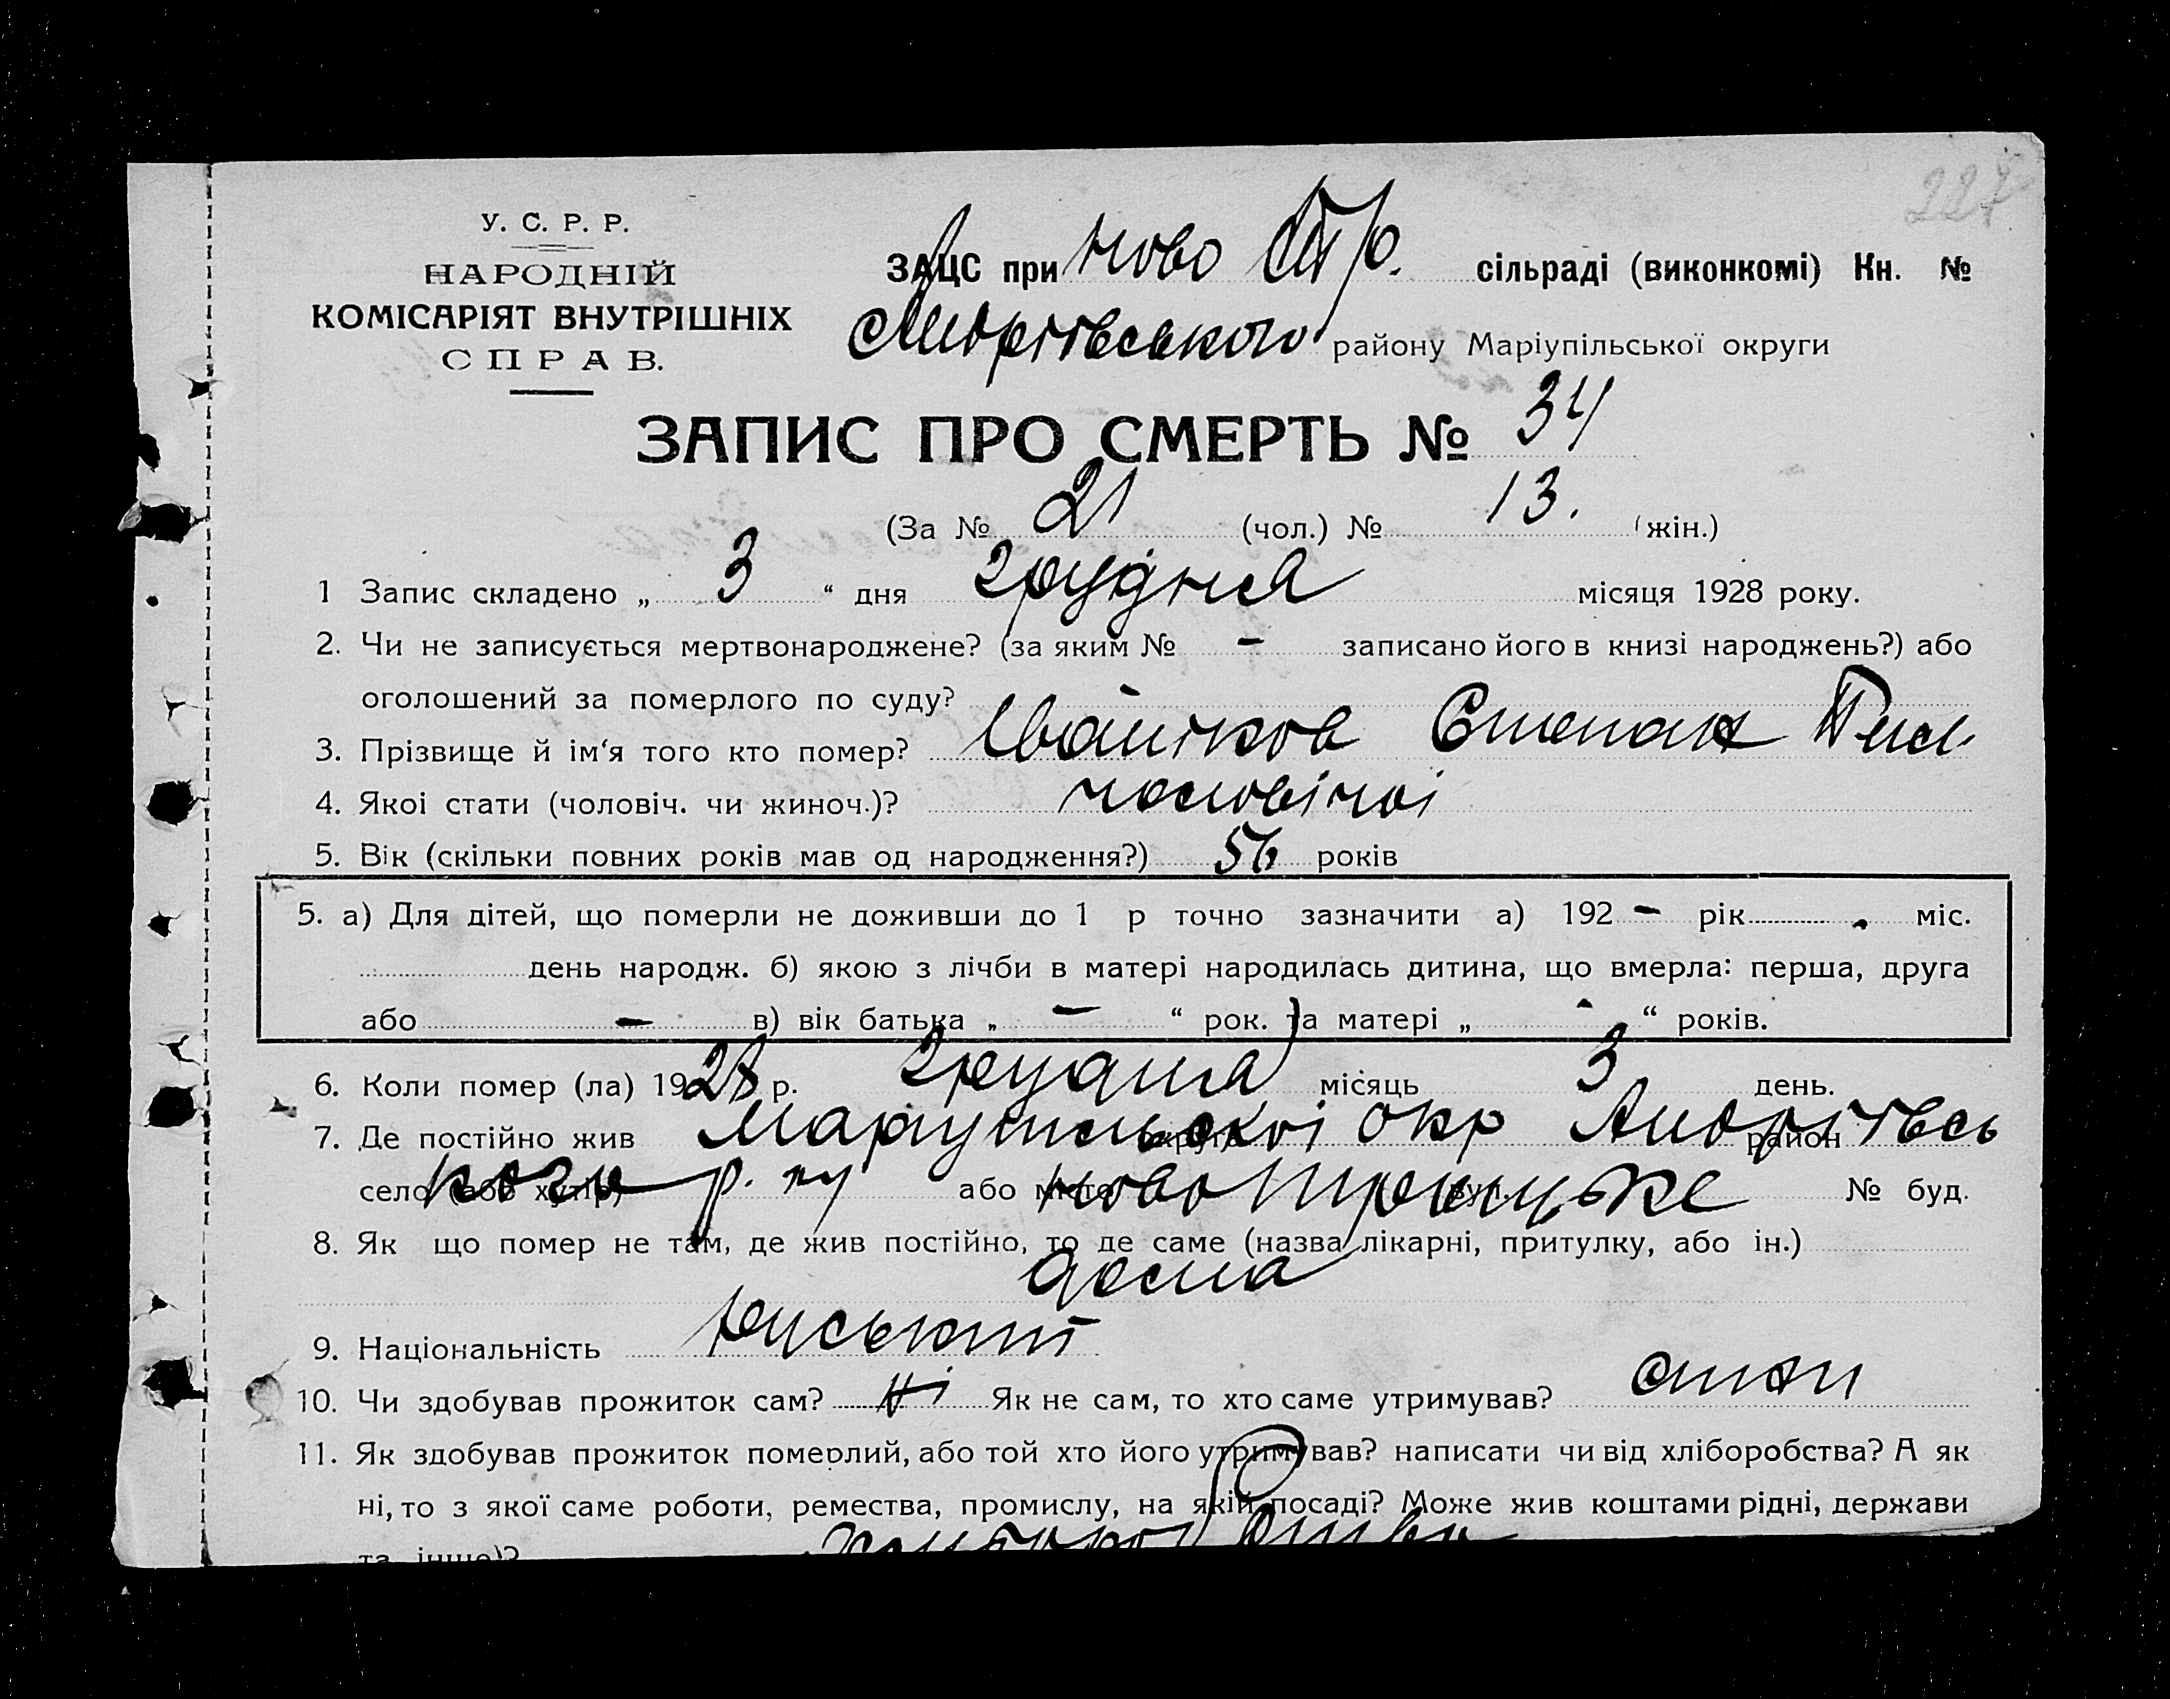 227
У. С. Р. Р.
НАРОДНІЙ
КОМІСАРІЯТ ВНУТРІШНІХ
СПРАВ.
ЗАЦС при Ново Тр. сільраді (виконкомі) Кн. №
Андріївського району Маріупільської округи
ЗАПИС ПРО СМЕРТЬ № 34
(За № 21 (чол.) № 13. (жін.)
1 Запис складено „ 3 “ дня грудня місяця 1928 року.
2. Чи не записується мертвонароджене? (за яким № – записано його в книзі народжень?) або
оголошений за померлого по суду?
3. Прізвище й ім‘я того кто помер? Степан
4. Якоі стати (чоловіч. чи жиноч.)? чоловічоі
5. Вік (скільки повних років мав од народження?) 56 років
5. а) Для дітей, що померли не доживши до 1 р точно зазначити а) 192 – рік - міс.
день народж. б) якою з лічби в матері народилась дитина, що вмерла: перша, друга
або – в) вік батька „ – “ рок. та матері „ - “ років.
6. Коли помер (ла) 1928 р. грудня місяць 3 день.
7. Де постійно жив Маріупільскоі окр округа Андріівсь район
кого р. ну село (або хутір) або місто Ново Троицьке вул. № буд.
8. Як що помер не там, де жив постійно, то де саме (назва лікарні, притулку, або ін.)
дома
9. Національність руський
10. Чи здобував прожиток сам? ні Як не сам, то хто саме утримував? сини
11. Як здобував прожиток померлий, або той хто його утримував? написати чи від хліборобства? А як
ні, то з якої саме роботи, ремества, промислу, на якій посаді? Може жив коштами рідні, держави
та інше)?